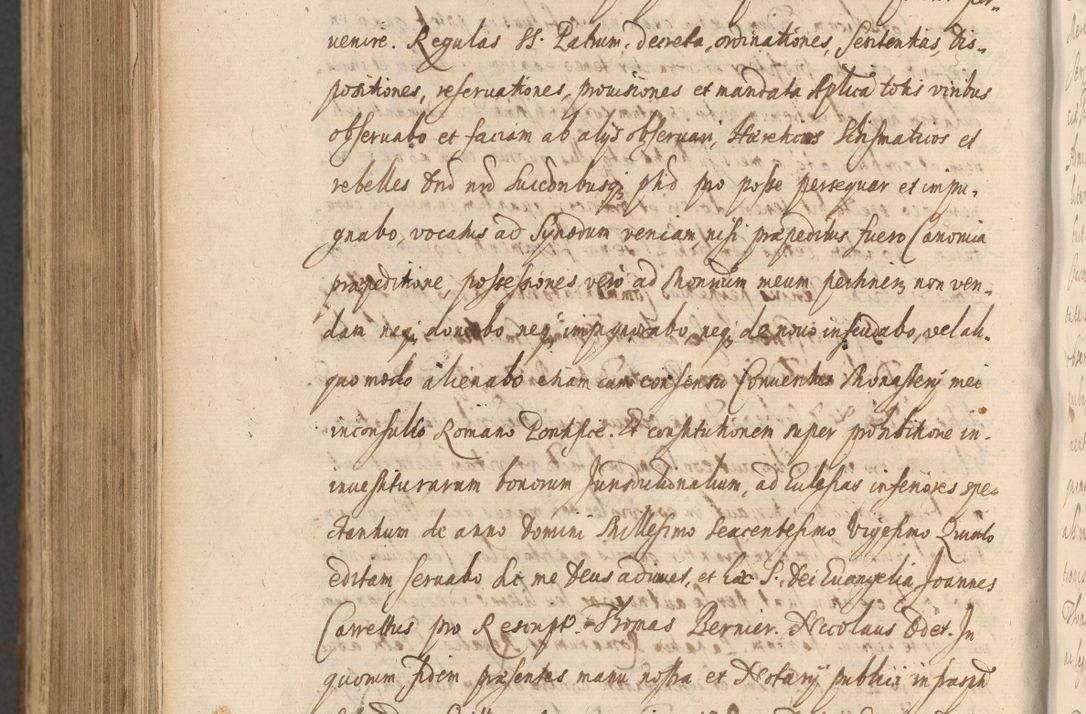 venire. Regulas SS. Patrum, decreta, ordinationes, sententias, dis-
positiones, reservationes, provisiones et mandata Aplica totis viribus
observabo et faciam ab alijs observari, Hæreticos Schismaticos et
rebelles Dno nro Successoribusq; phd pro posse persequar et impu-
gnabo, vocatus ad Synodum veniam nisi præpeditus fuero Canonica
præpeditione, possessiones vero ad Monrium meum pertinen: non ven-
dam neq; donabo, neq; impignorabo, neq; de novo infeudabo, vel ali-
quo modo alienabo etiam cum consensu Conventus Monasterij mei
inconsulto Romano Pontifice. Et constitutionem super prohibitione in-
investiturarum bonorum Jurisdictionalium, ad Ecclesias inferiores spe-
ctantium de anno Domini Millesimo Sexcentesimo Vigesimo Quinto
editam, servabo sic me Deus adiuvet, et hæc S. Dei Evangelia, Joannes
Carrettus pro Rescript. Thomas Bernier. Nicolaus Odet. In
quorum fidem præsentes manu nostra et Notarij publici infrascrpti